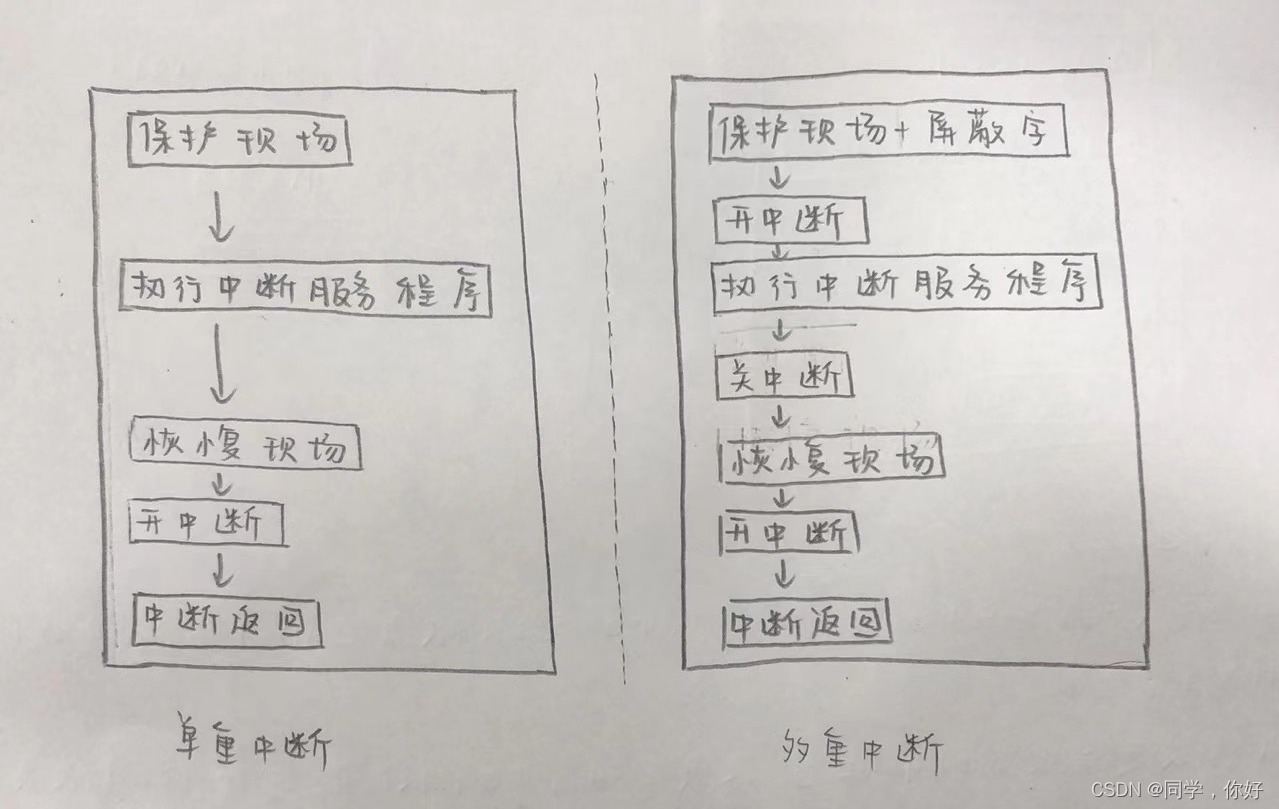 保护现场
执行中断服务程序
恢复现场
开中断
中断返回
单重中断
保护现场+屏蔽字
开中断
执行中断服务程序
关中断
恢复现场
开中断
中断返回
多重中断
CSDN @同学，你好